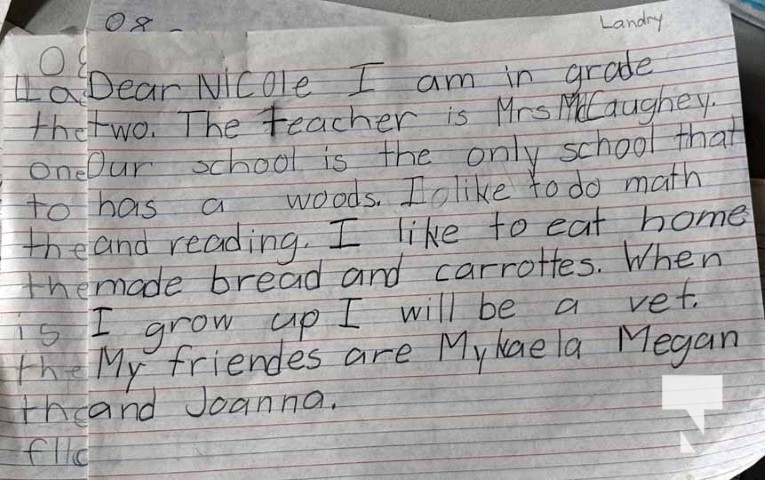 08
Landry
Dear Nicole I am in grade
two. The teacher is Mrs McCaughey.
Our school is the only school that
has a woods. I like to do math
and reading. I like to eat home
made bread and carrottes. When
I grow up I will be a vet.
My friendes are Mykaela Megan
and Joanna.
the
one
to
the
the
is
the